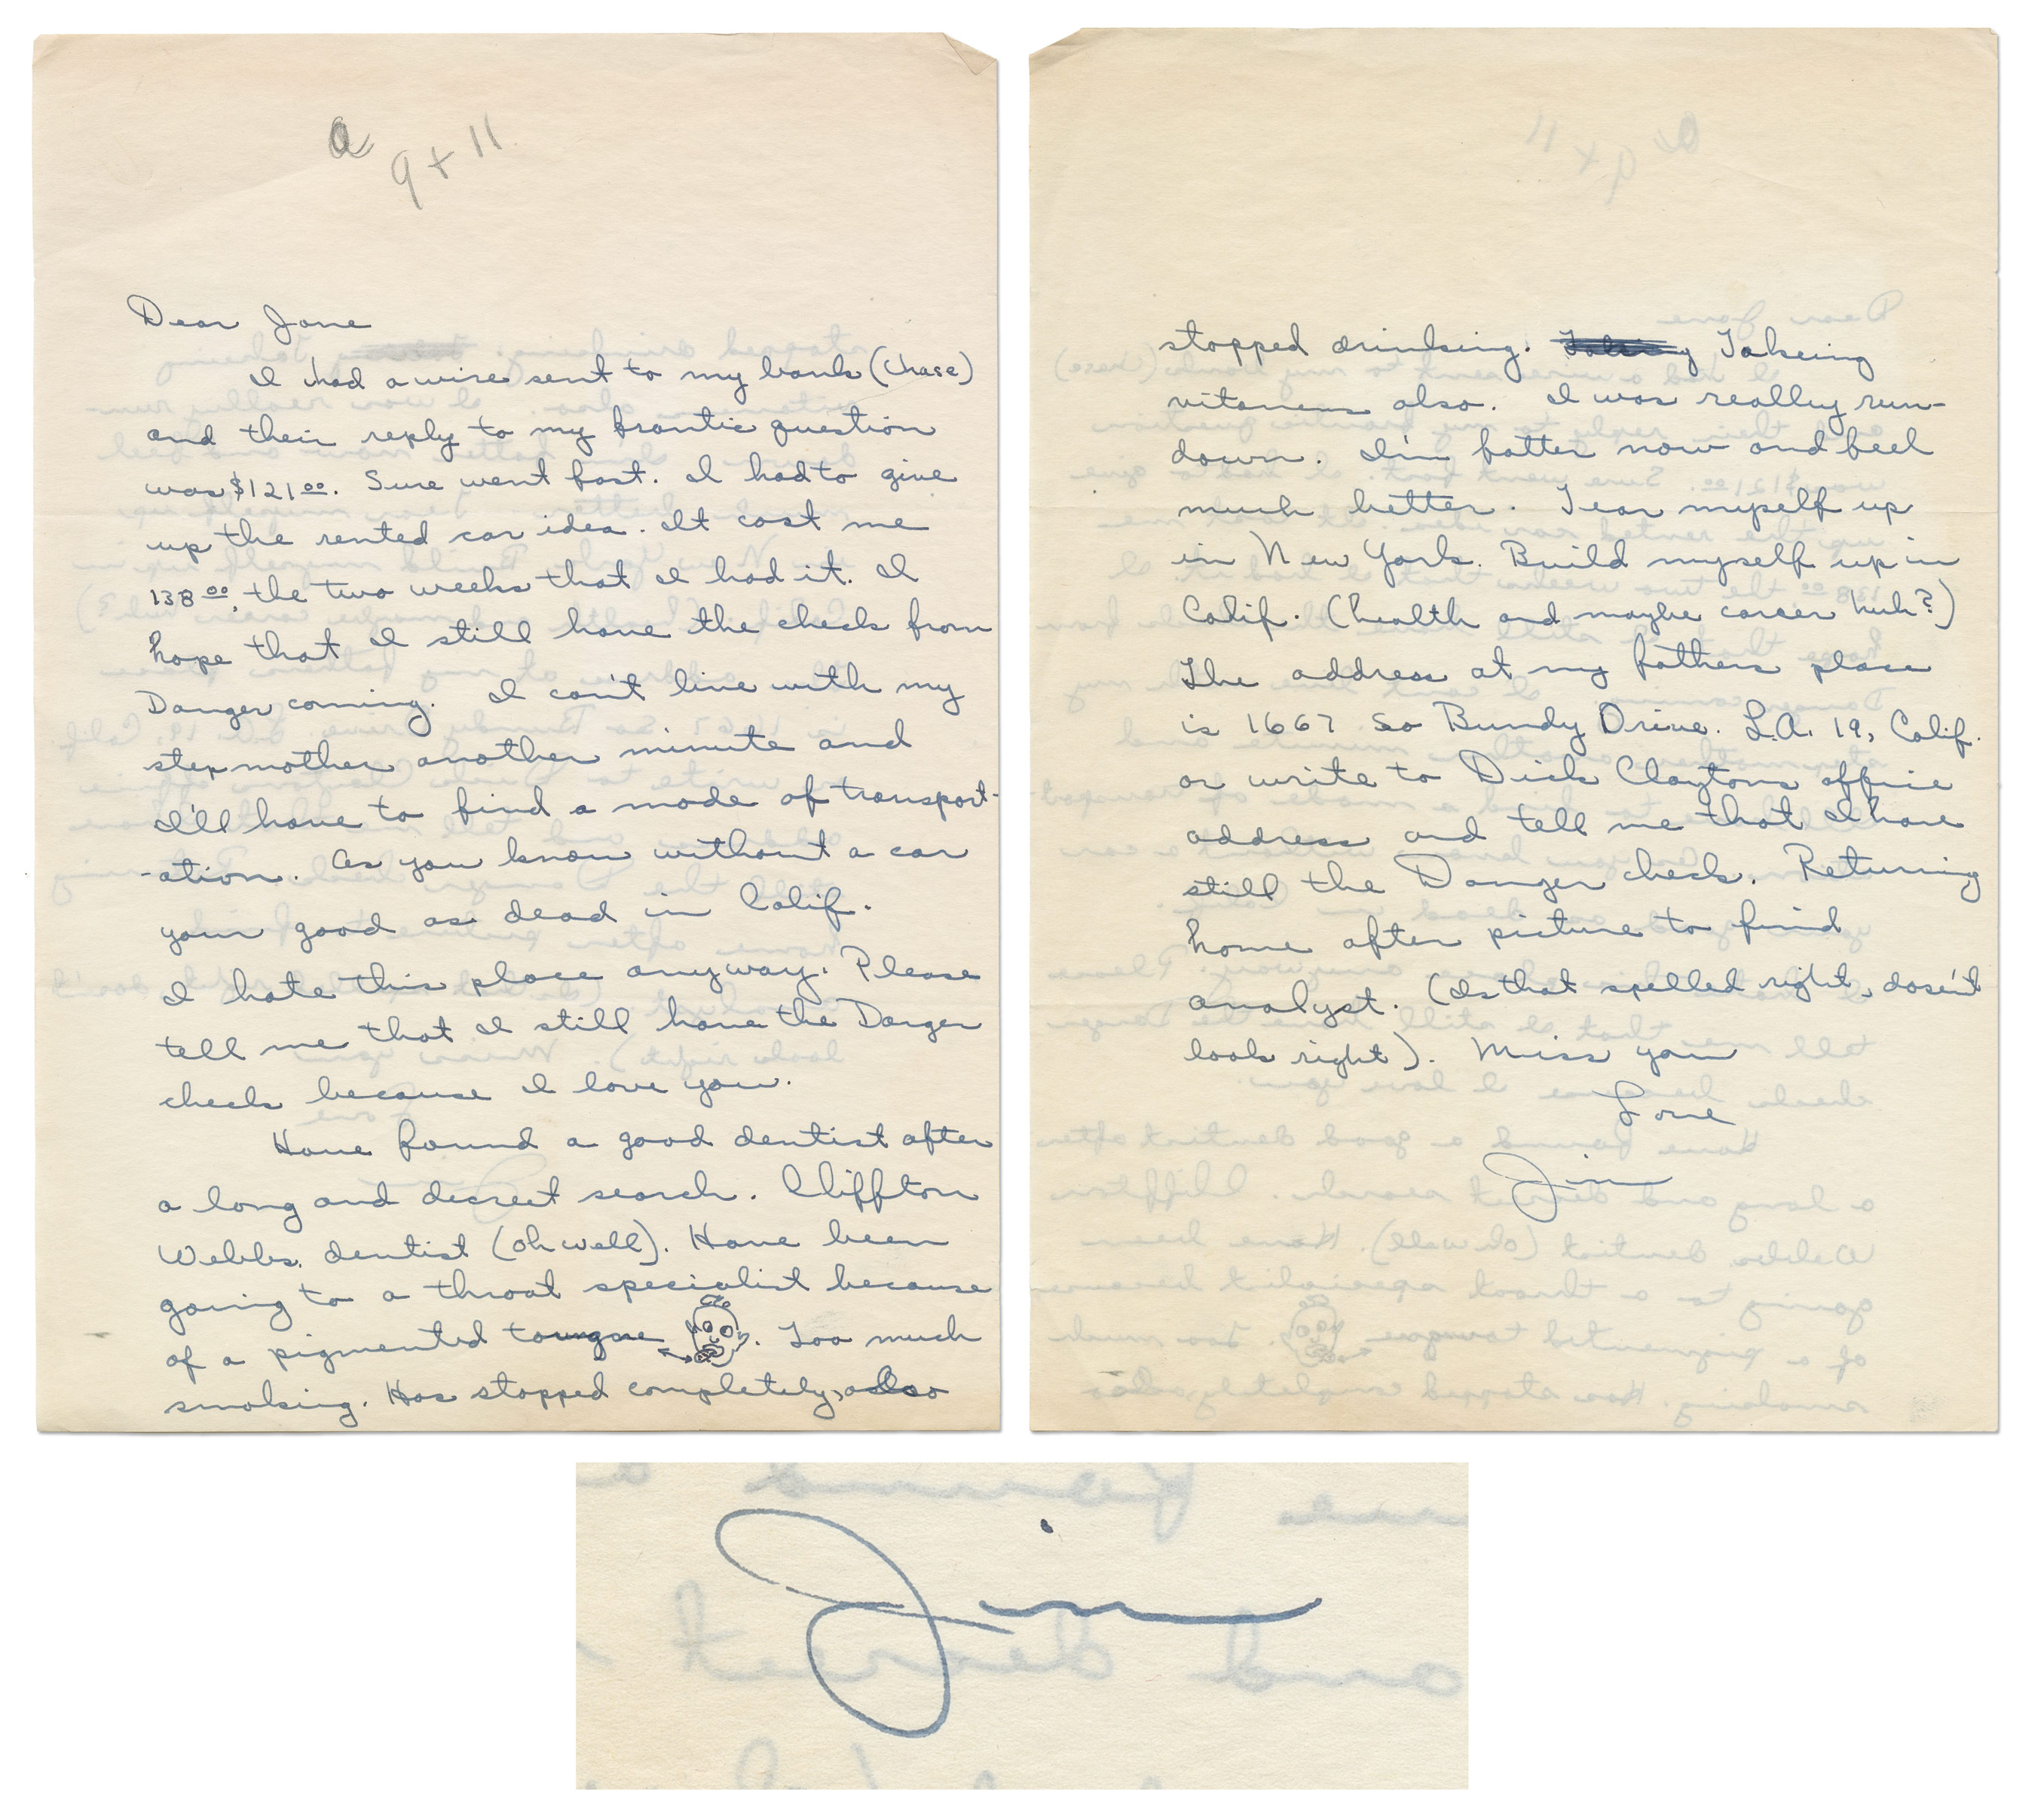 a
9 + 11
Dear Jane
I had a wire sent to my bank (Chase)
and their reply to my frantic question
was $121 00. Sure went fast. I had to give
up the rented car idea. It cost me
138 00, the two weeks that I had it. I
hope that I still have the check from
Danger coming. I can't live with my
stepmother another minute and
I'll have to find a mode of transport-
-ation. As you know without a car
your good as dead in Calif.
I hate this place anyway. Please
tell me that I still have the Danger
check because I love you.
Have found a good dentist after
a long and descreet search. Cliffton
Webbs dentist (oh well). Have been
going to a throat specialist because
of a pigmented toungue . Too much
smoking. Has stopped completely, also
stopped drinking. Takeing
vitamens also. I was really run-
down. I'm fatter now and feel
much better. Tear myself up
in New York. Build myself up in
Calif. (health and maybe career huh?)
The address at my fathers place
is 1667 So Bundy Drive. L.A. 19, Calif.
or write to Dick Claytons office
address and tell me that I have
still the Danger check. Returning
home after picture to find
analyst. (Is that spelled right, dosen't
look right). Miss you
Love
Jim
Jim